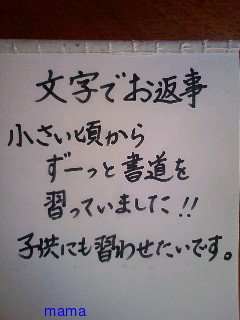 文字でお返事
小さい頃から
ずーっと書道を
習っていました!!
子供にも習わせたいです。
mama